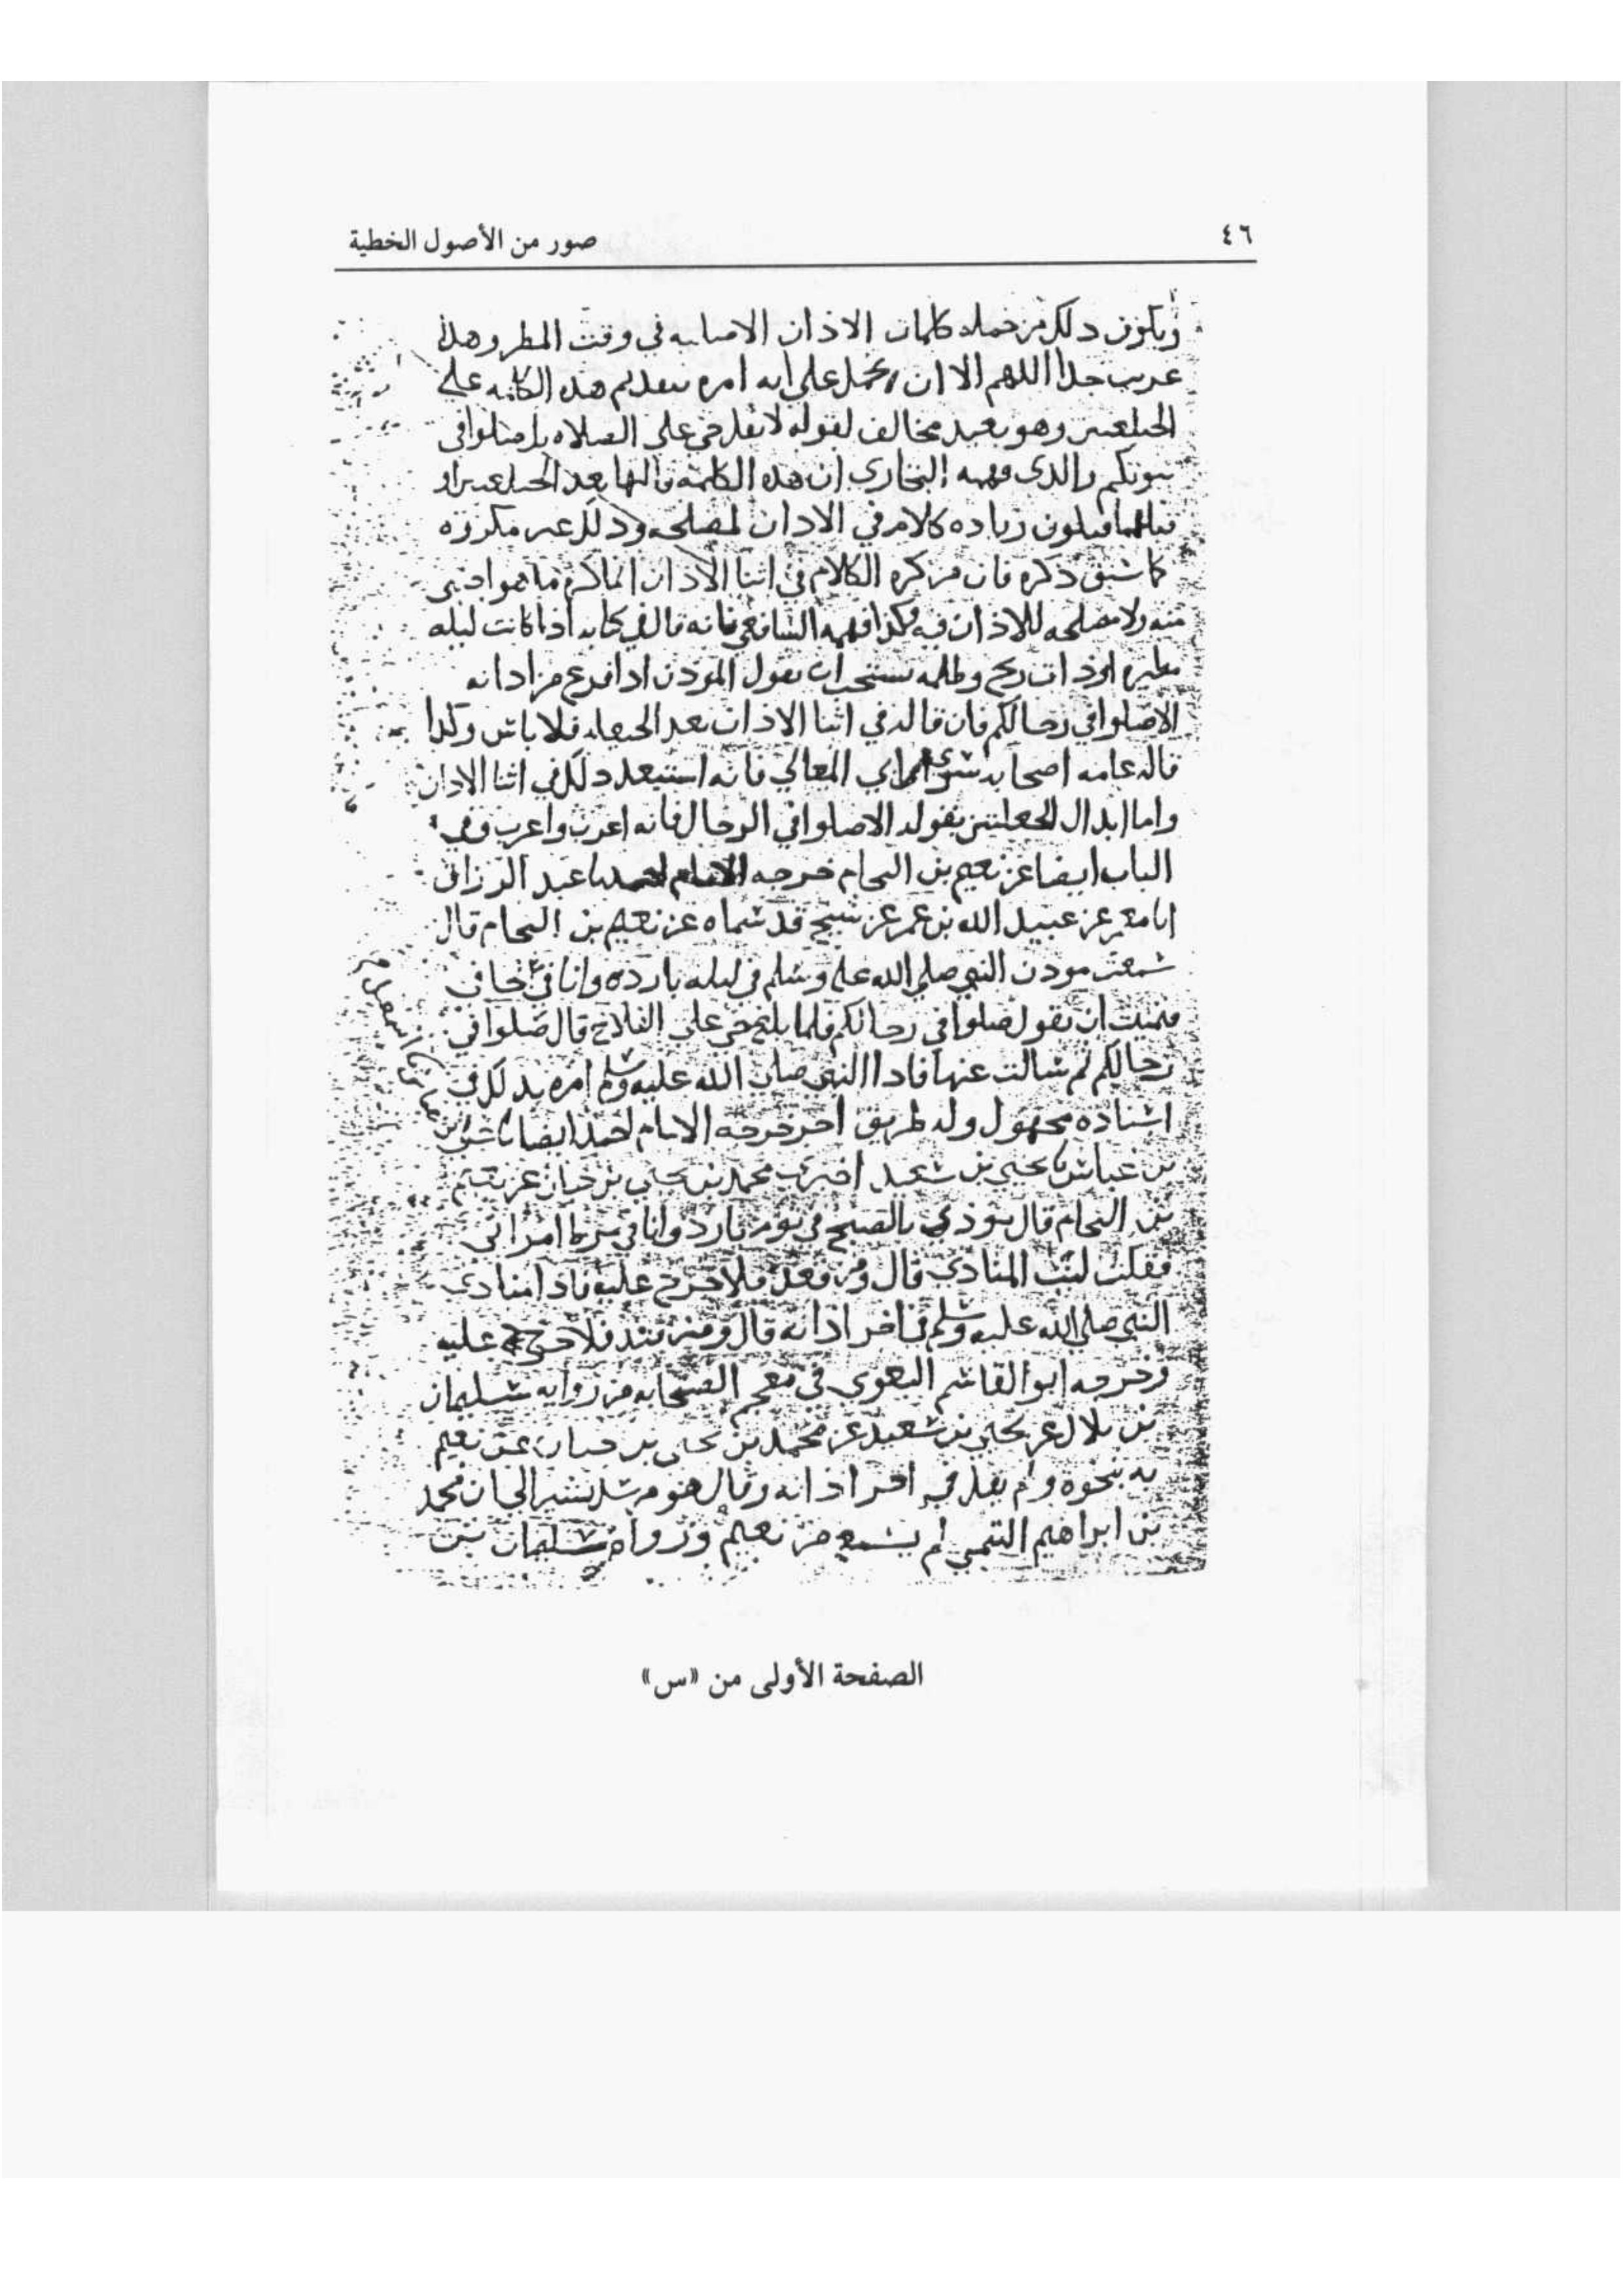 ٤٦
صور من الأصول الخطية
ويكون دلك من حمله كلمات الاذان الاصليه في وقت المطر وهذا
عريب جدا اللهم الا ان يحمل على انه امره بتقديم هذه الكلمه على
الحيلعتين وهو بعيد مخالف لقوله لا تقل حي على الصلاه بل صلوا في
بيوتكم والذي فهمه البخاري ان هذه الكلمة قالها بعد الحيلعتين او
قبلهما فيكون زياده كلام في الاذان لمصلحه وذلك غير مكروه
كما سبق ذكره فان من كره الكلام في اثنا الاذان انما كره ما هو اجنبي
منه ولا مصلحه للاذان فيه وكذا فهمه الشافعي فانه قال في كتابه اذا كانت ليله
مطيره او ذات ريح وظلمه يستحب ان يقول الموذن اذا فرغ من اذانه
الا صلوا في رحالكم فان قاله في اثنا الاذان بعد الحيعله فلا باس وكذا
قاله عامه اصحابه سوى ابي المعالي فانه استبعد ذلك في اثنا الاذان
واما ابدال الحيعلتين بقوله الا صلوا في الرحال فانه اغرب واغرب وفي
الباب ايضا عن نعيم بن النحام خرجه الامام احمد نا عبد الرزاق
انا معمر عن عبيد الله بن عمر عن شيخ قد سماه عن نعيم بن النحام قال
سمعت موذن النبي صلى الله عليه وسلم في ليله بارده وانا في لحافي
فتمنيت ان يقول صلوا في رحالكم فلما بلغ حي على الفلاح قال صلوا في
رحالكم ثم سالت عنها فاذا النبي صلى الله عليه وسلم امره بذلك في
اسناده مجهول وله طريق اخر خرجه الامام احمد ايضا نا علي
بن عياش نا يحيى بن سعيد اخبرني محمد بن يحيى بن حبان عن نعيم
بن النحام قال نودي بالصبح في يوم بارد وانا في مرط امراتي
فقلت ليت المنادي قال ومن قعد فلا حرج عليه فاذا منادي
النبي صلى الله عليه وسلم في اخر اذانه قال ومن قعد فلا حرج عليه
وخرجه ابو القاسم البغوي في معجم الصحابه من روايه سليمان
بن بلال عن يحيى بن سعيد عن محمد بن يحيى بن حبان عن نعيم
به بنحوه ولم يقل في اخر اذانه وقال هو مرسل يشير الى ان محمد
بن ابراهيم التيمي لم يسمع من نعيم ورواه سليمان بن
الصفحة الأولى من «س»